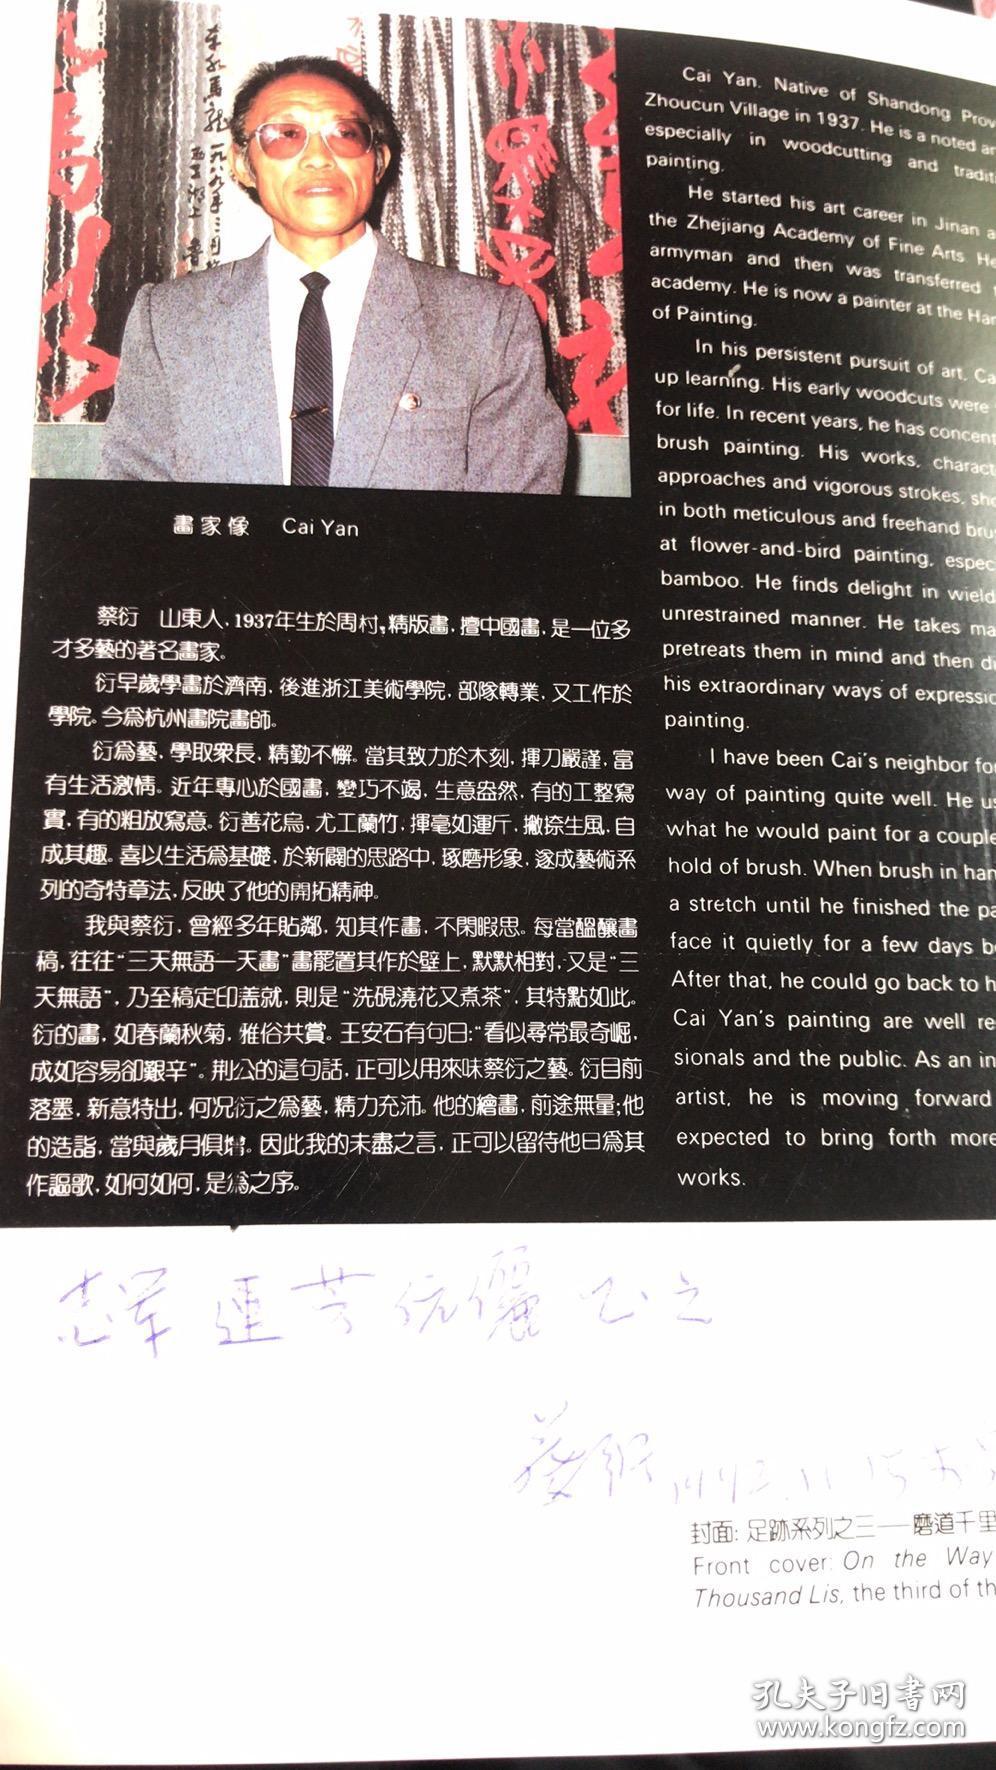 畫家像 Cai Yan
蔡衍 山東人，1937年生於周村，精版畫，擅中國畫，是一位多
才多藝的著名畫家。
衍早歲學畫於濟南，後進浙江美術學院，部隊轉業，又工作於
學院。今爲杭州畫院畫師。
衍爲藝，學取衆長，精勤不懈。當其致力於木刻，揮刀嚴謹，富
有生活激情。近年專心於國畫，變巧不竭，生意盎然，有的工整寫
實，有的粗放寫意。衍善花鳥，尤工蘭竹，揮毫如運斤，撇捺生風，自
成其趣。喜以生活爲基礎，於新闢的思路中，琢磨形象，遂成藝術系
列的奇特章法，反映了他的開拓精神。
我與蔡衍，曾經多年貼鄰，知其作畫，不閑暇思。每當醞釀畫
稿，往往“三天無語一天畫”畫罷置其作於壁上，默默相對，又是“三
天無語”，乃至稿定印蓋就，則是“洗硯澆花又煮茶”，其特點如此。
衍的畫，如春蘭秋菊，雅俗共賞。王安石有句曰：“看似尋常最奇崛，
成如容易卻艱辛”。荆公的這句話，正可以用來味蔡衍之藝。衍目前
落墨，新意特出，何况衍之爲藝，精力充沛。他的繪畫，前途無量；他
的造詣，當與歲月俱增。因此我的未盡之言，正可以留待他日爲其
作謳歌，如何如何，是爲之序。
Cai Yan. Native of Shandong Prov
Zhoucun Village in 1937. He is a noted ar
especially in woodcutting and tradit
painting.
He started his art career in Jinan a
the Zhejiang Academy of Fine Arts. He
armyman and then was transferred t
academy. He is now a painter at the Han
of Painting.
In his persistent pursuit of art, Ca
up learning. His early woodcuts were
for life. In recent years, he has concent
brush painting. His works, charact
approaches and vigorous strokes, sho
in both meticulous and freehand bru
at flower-and-bird painting, espec
bamboo. He finds delight in wield
unrestrained manner. He takes ma
pretreats them in mind and then di
his extraordinary ways of expressio
painting.
I have been Cai's neighbor for
way of painting quite well. He us
what he would paint for a couple
hold of brush. When brush in han
a stretch until he finished the pa
face it quietly for a few days be
After that, he could go back to h
Cai Yan's painting are well re
sionals and the public. As an in
artist, he is moving forward
expected to bring forth more
works.
連芳伉儷正之
蔡衍
封面：足跡系列之三——磨道千里
Front cover: On the Way
Thousand Lis, the third of th
孔夫子旧书网
www.kongfz.com